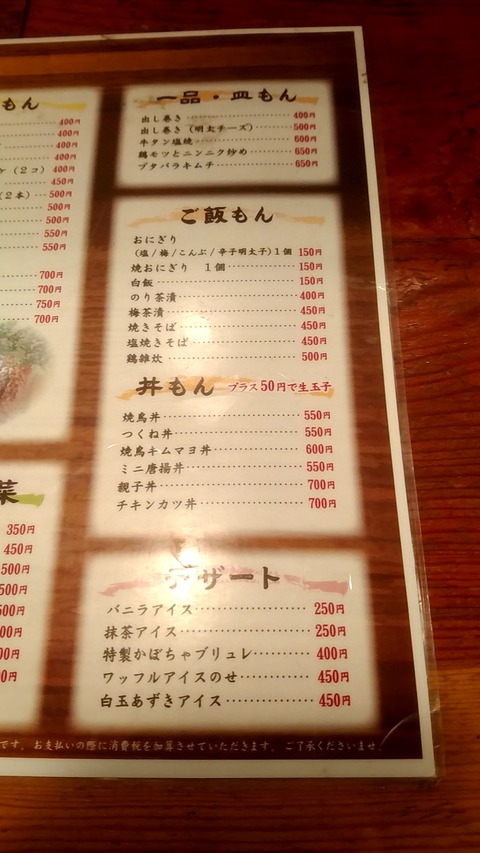 もん
400円
400円
400円
400円
ケ(2コ) 400円
450円
(2本) 500円
500円
500円
550円
550円
700円
700円
750円
700円
菜
350円
450円
500円
500円
500円
00円
00円
0円
一品・皿もん
出し巻き 400円
出し巻き(明太チーズ) 500円
牛タン塩焼 600円
鶏モツとニンニク炒め 650円
ブタバラキムチ 650円
ご飯もん
おにぎり
(塩/梅/こんぶ/辛子明太子)1個 150円
焼おにぎり 1個 150円
白飯 150円
のり茶漬 400円
梅茶漬 450円
焼きそば 450円
塩焼きそば 450円
鶏雑炊 500円
丼もん プラス50円で生玉子
焼鳥丼 550円
つくね丼 550円
焼鳥キムマヨ丼 600円
ミニ唐揚丼 550円
親子丼 700円
チキンカツ丼 700円
デザート
バニラアイス 250円
抹茶アイス 250円
特製かぼちゃブリュレ 400円
ワッフルアイスのせ 450円
白玉あずきアイス 450円
です。お支払いの際に消費税を加算させていただきます。ご了承くださいませ。